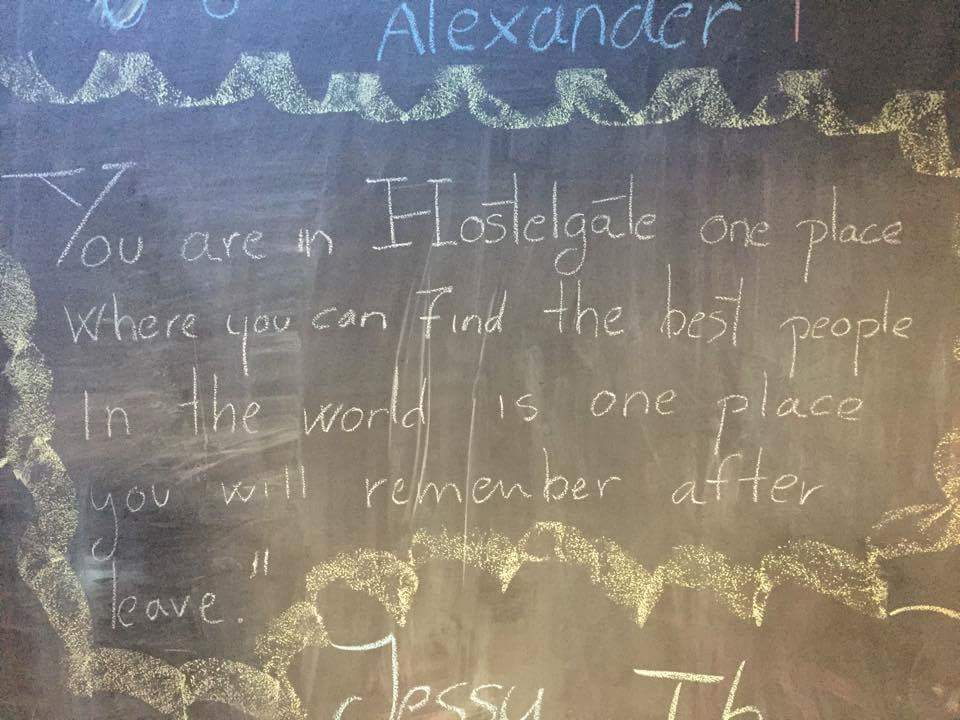 Alexander
You are in Hostelgate one place
where you can find the best people
In the world is one place
you will remember after
leave."
Jessy Th